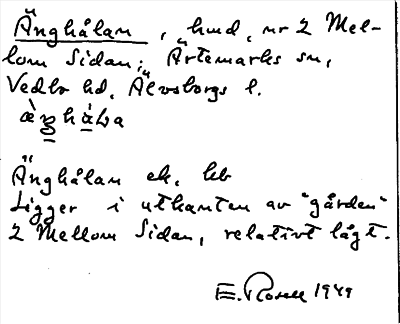 Änghålan, hmd, nr 2 Mel-
lom Sidan; Ärtemarks sn,
Vedbo hd, Älvsborgs l.
Änghålan ek, hb
Ligger i utkanten av "gården"
2 Mellom Sidan, relativt lågt.
E. Rosell 1949